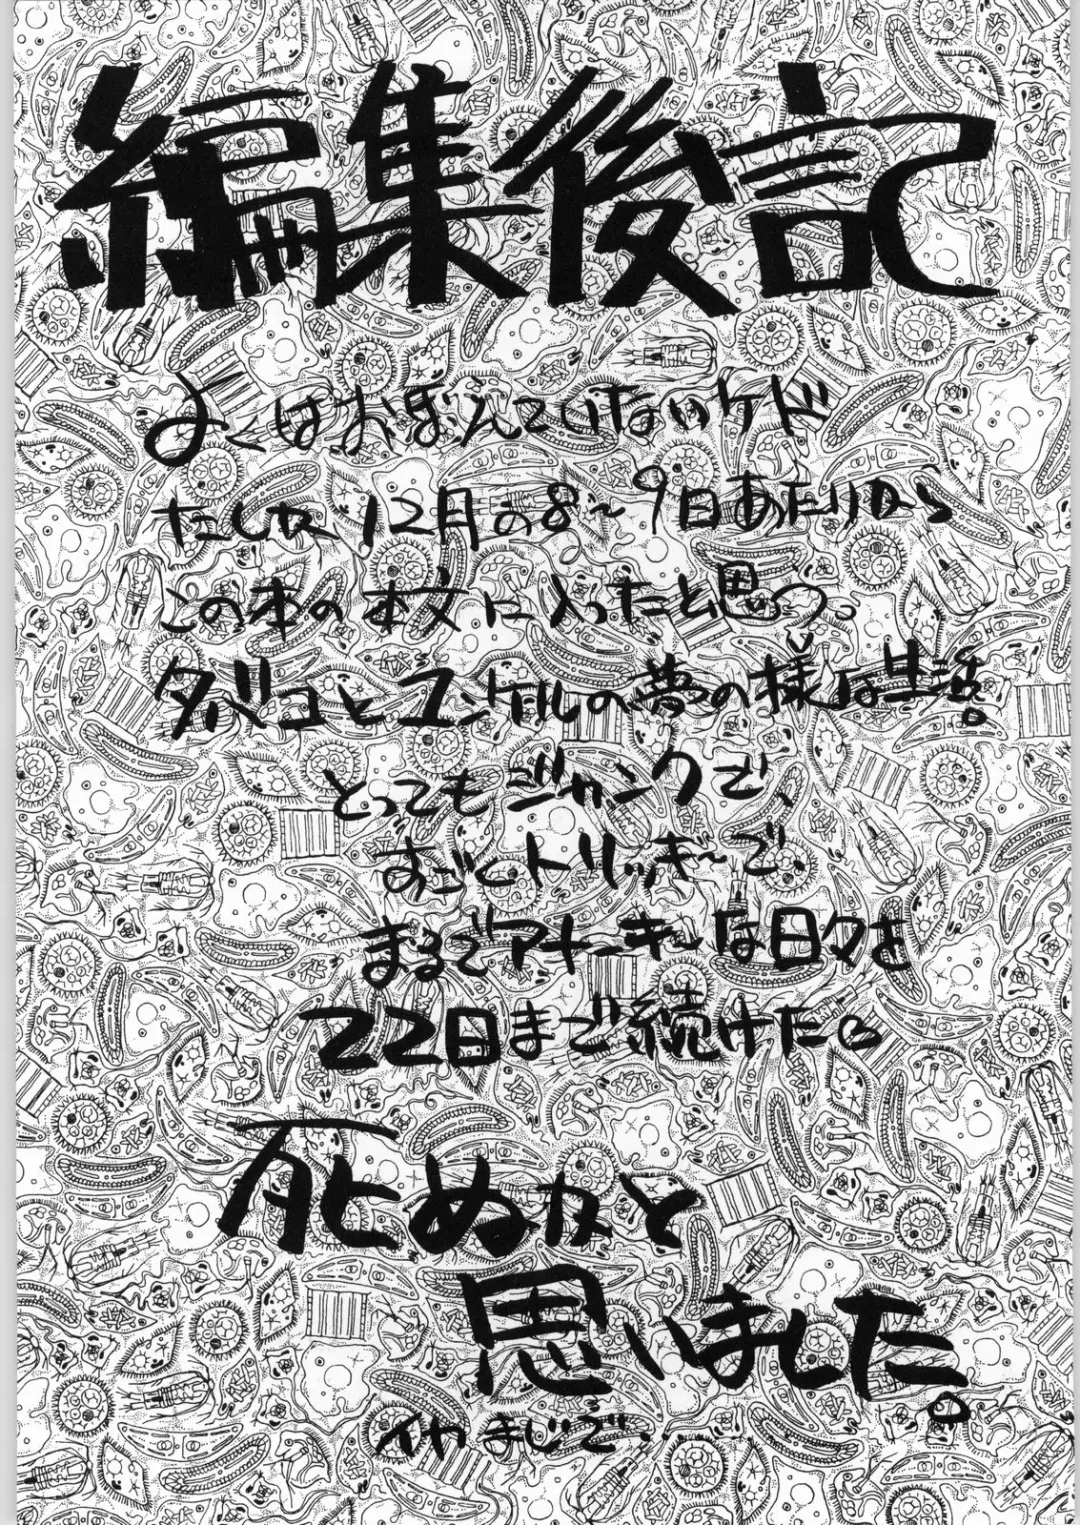 編集後記
よくはおぼえていないケド
たしか12月の8〜9日あたりから
この本の本文に入ったと思う。
タバコとユンケルの夢の様な生活。
とってもジャンクで、
すごくトリッキーで、
まるでアナーキーな日々を
22日まで続けた♡
死ぬかと
思いました。
イヤまじで。